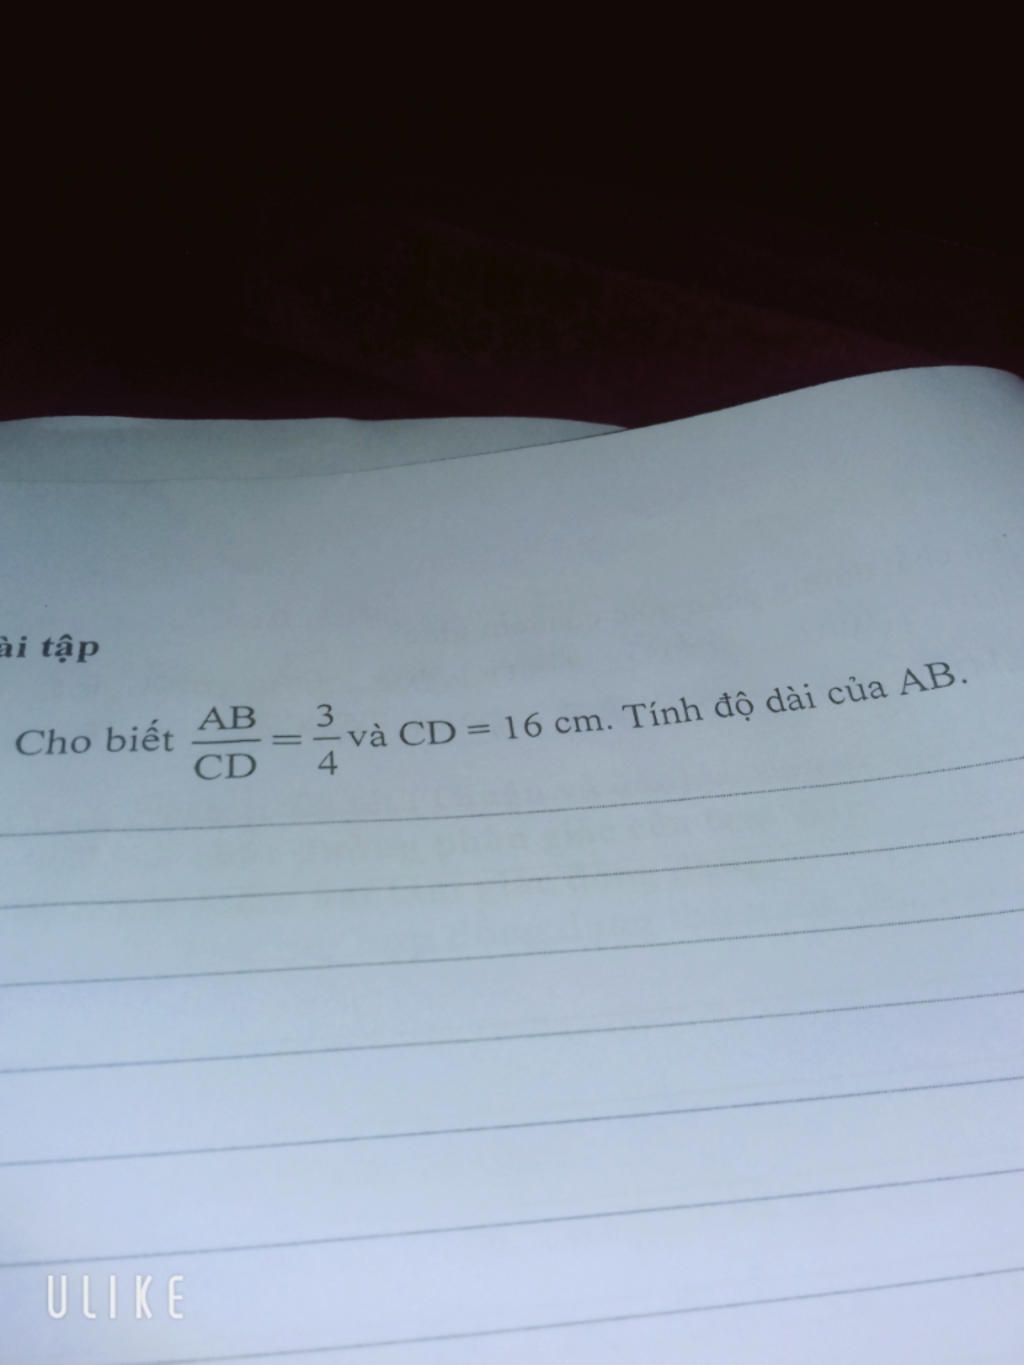 ài tập
Cho biết AB/CD = 3/4 và CD = 16 cm. Tính độ dài của AB.
ULIKE